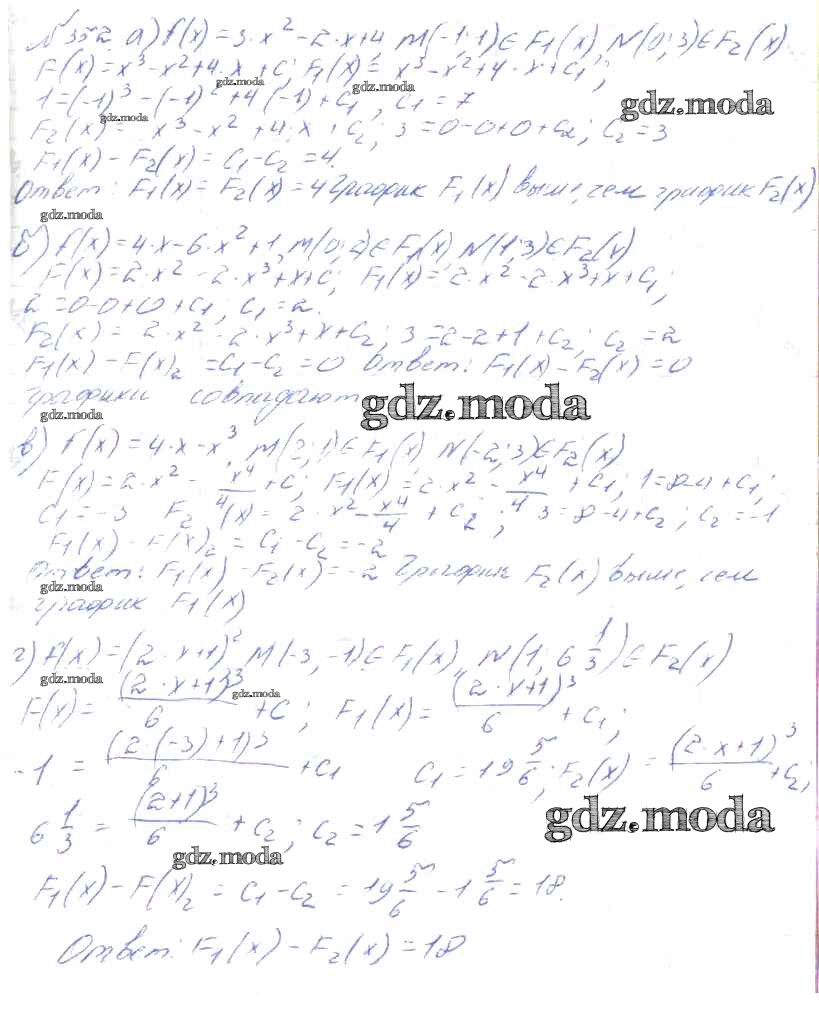 №352 а) f(x) = 3·x² - 2·x+4, M(-1;1) ∈ F₁(x), N(0;3) ∈ F₂(x)
F(x) = x³-x²+4·x+C; F₁(x) = x³-x²+4·x+C₁;
gdz.moda
gdz.moda
gdz.moda
1 = (-1)³ - (-1)² + 4(-1) + C₁, C₁ = 7
gdz.moda
F₂(x) = x³-x²+4·x+C₂; 3 = 0-0+0+C₂; C₂ = 3
F₁(x) - F₂(x) = C₁-C₂ = 4.
Ответ: F₁(x) = F₂(x) = 4 График F₁(x) выше, чем график F₂(x)
gdz.moda
б) f(x) = 4·x-6·x²+1, M(0;2) ∈ F₁(x) N(1;3) ∈ F₂(x)
F(x) = 2·x²-2·x³+x+C; F₁(x) = 2·x²-2·x³+x+C₁;
2 = 0-0+0+C₁; C₁ = 2.
F₂(x) = 2·x²-2·x³+x+C₂; 3 = 2-2+1+C₂; C₂ = 2
F₁(x) - F(x)₂ = C₁-C₂ = 0 Ответ: F₁(x) - F₂(x) = 0
графики совпадают
gdz.moda
gdz.moda
в) f(x) = 4·x-x³, M(2;1) ∈ F₁(x) N(-2;3) ∈ F₂(x)
F(x) = 2·x² - x⁴/4 + C; F₁(x) = 2·x² - x⁴/4 + C₁; 1 = 8-4+C₁;
C₁ = -3 F₂(x) = 2·x² - x⁴/4 + C₂; 3 = 8-4+C₂; C₂ = -1
F₁(x) - F(x)₂ = C₁-C₂ = -2
Ответ: F₁(x) - F₂(x) = -2 График F₂(x) выше, чем
gdz.moda
график F₁(x)
г) f(x) = (2·x+1)² M(-3,-1) ∈ F₁(x), N(1; 6 1/3) ∈ F₂(x)
gdz.moda
gdz.moda
F(x) = (2·x+1)³/6 + C; F₁(x) = (2·x+1)³/6 + C₁;
-1 = (2·(-3)+1)³/6 + C₁ C₁ = 19 5/6; F₂(x) = (2·x+1)³/6 + C₂;
6 1/3 = (2+1)³/6 + C₂; C₂ = 1 5/6
gdz.moda
gdz.moda
F₁(x) - F(x)₂ = C₁-C₂ = 19 5/6 - 1 5/6 = 18.
Ответ: F₁(x) - F₂(x) = 18